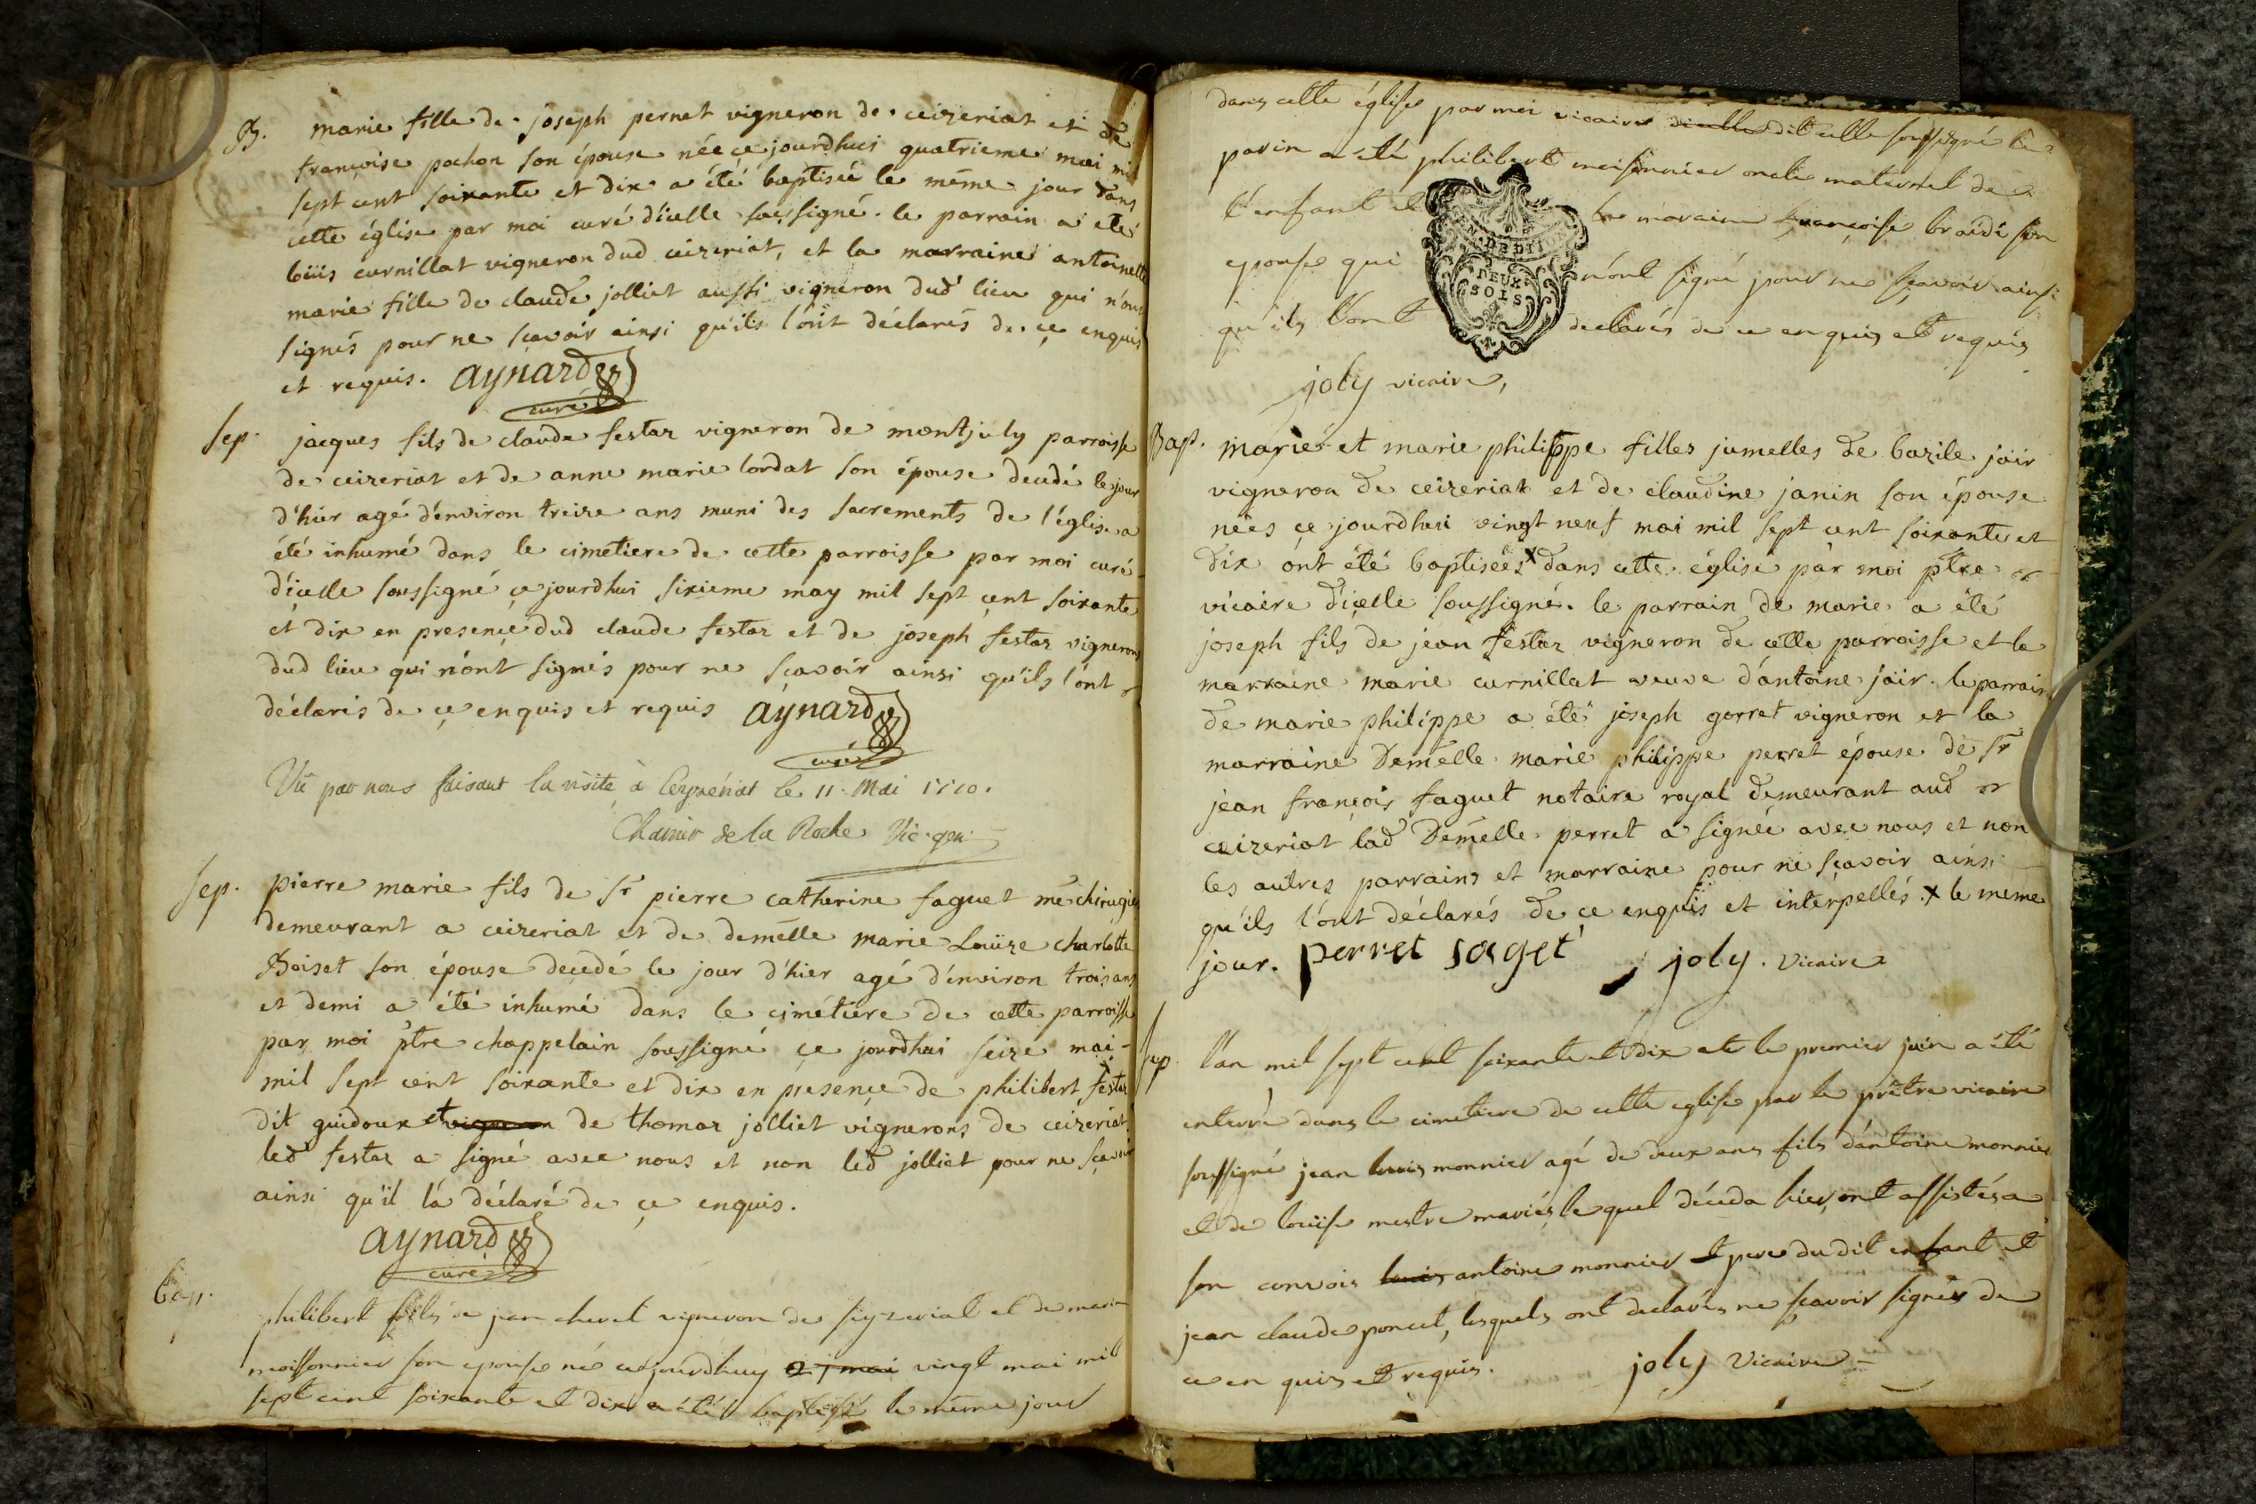 B. marie fille de joseph pernet vigneron de ceizeriat et de
francoise pochon son épouse née ce jourdhui quatrieme mai mil
sept cent soixante et dix a été baptisée le même jour dans
cette église par moi curé d'icelle soussigné. le parrain a été
loüis curnillat vigneron dud ceizeriat, et la marraine antoinette
marie fille de claude jolliet aussi vigneron dud lieu qui n'ont
signés pour ne sçavoir ainsi qu'ils l'ont déclarés de ce enquis
et requis. aynard
curé
sep. jacques fils de claude festaz vigneron de montjuly parroisse
de ceizeriat et de anne marie lordat son épouse decedé le jour
d'hier agé d'environ treize ans muni des sacrements de l'église a
été inhumé dans le cimetiere de cette parroisse par moi curé
d'icelle soussigné ce jourdhui sixieme may mil sept cent soixante
et dix en presence dud claude festaz et de joseph festaz vignerons
dud lieu qui n'ont signés pour ne sçavoir ainsi qu'ils l'ont
déclarés de ce enquis et requis aynard
curé
Vû par nous faisant la visite à Ceyzériat le 11. Mai 1770.
de la Roche Vic. gen.
sep. pierre marie fils de sr pierre catherine faguet me chirugien
demeurant a ceizeriat et de demelle marie Loüize charlotte
Boiset son épouse decedé le jour d'hier agé d'environ trois ans
et demi a été inhumé dans le cimétiére de cette parroisse
par moi ptre chappelain soussigné ce jourdhui seize mai
mil sept cent soixante et dix en presence de philibert festaz
dit guidoux et vigneron de thomas jolliet vignerons de ceizeriat
led festaz a signé avec nous et non led jolliet pour ne sçavoir
ainsi qu'il l'a déclaré de ce enquis.
aynard
curé
bap. philibert fils de jean chevet vigneron de seyzeriat et de marie
moissonnier son epouse né cejourdhuy 21 mai vingt mai mil
sept cent soixante et dix a été baptisé le même jour
dans cette église par moi vicaire dicelle dit celle soussigné le
parin a été philibert moissonnier oncle maternel de
l'enfant et la maraine françoise son
epouse qui n'ont signé pour ne sçavoir ainsi
qu'ils l'ont declarés de ce enquis et requis
DEUX
SOLS
joly vicaire,
Bap. marie et marie philippe filles jumelles de bazile joir
vigneron de ceizeriat et de claudine janin son épouse
neés ce jourdhui vingt neuf mai mil sept cent soixante et
dix ont été baptiseés x dans cette église par moi ptre
vicaire d'icelle soussigné. le parrain de marie a été
joseph fils de jean festaz vigneron de cette parroisse et la
marraine marie curnillat veuve d'antoine joir. le parrain
de marie philippe a été joseph gorret vigneron et la
marraine Demelle marie philippe perret épouse de sr
jean françois faguet notaire royal demeurant aud
ceizeriat lad Demelle perret a signée avec nous et non
les autres parrains et marraine pour ne sçavoir ainsi
qu'ils l'ont déclarés de ce enquis et interpellés. x le meme
jour. perret faget joly. vicaire
sep. l'an mil sept cent soixante et dix et le premier juin a été
enterré dans le cimetiere de cette eglise par le prêtre vicaire
soussigné jean louis monnier agé de deux ans fils d'antoine monnier
et de loüise mestre mariés, lequel déceda hier, ont assistés a
son convois louis antoine monnier et pere du dit enfant et
jean claude poncet, lesquels ont declarés ne sçavoir signer de
ce en quis et requis. joly vicaire